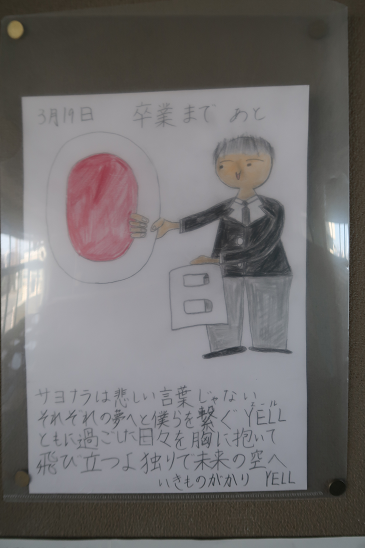 3月19日 卒業まで あと
サヨナラは悲しい言葉じゃない
それぞれの夢へと僕らを繋ぐ YELL
エール
ともに過ごした日々を胸に抱いて
飛び立つよ独りで未来の空へ
いきものがかり YELL